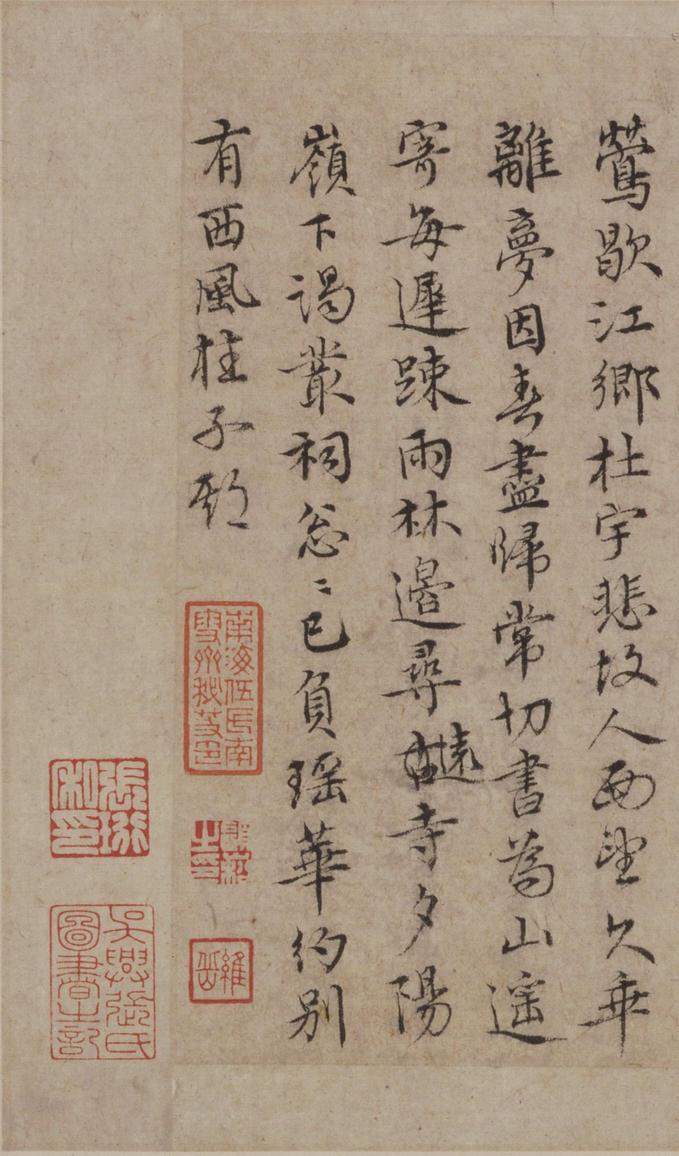 鶯歇江鄉杜宇悲故人西望久乖
離夢因春盡歸常切書為山遥
寄每遲踈雨林邊尋古遠寺夕陽
嶺下謁叢祠怱〻已負瑶華約别
有西風桂子期
南海伍氏南雪齋秘笈印
張珩私印
吳興張氏圖書之記